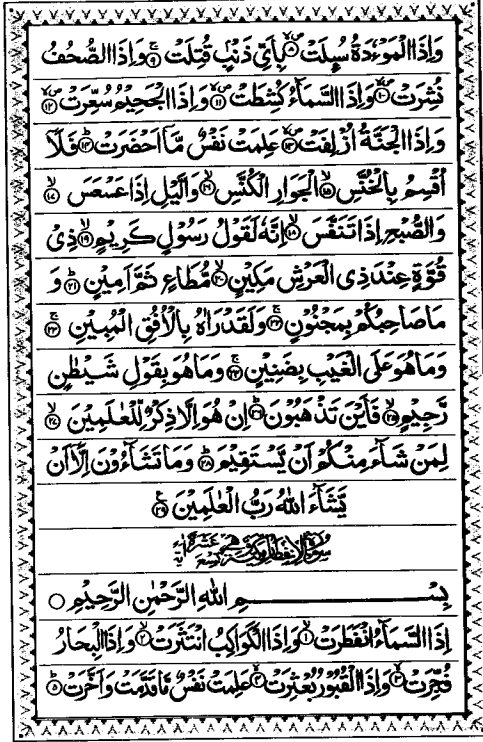 وَاِذَا الْمَوْءٗدَةُ سُىِٕلَتْ ۪ۙ﴿۸﴾ بِاَیِّ ذَنْۢبٍ قُتِلَتْ ۚ﴿۹﴾ وَاِذَا الصُّحُفُ
نُشِرَتْ ۪ۙ﴿۱۰﴾ وَاِذَا السَّمَآءُ كُشِطَتْ ۪ۙ﴿۱۱﴾ وَاِذَا الْجَحِیْمُ سُعِّرَتْ ۪ۙ﴿۱۲﴾
وَاِذَا الْجَنَّةُ اُزْلِفَتْ ۪ۙ﴿۱۳﴾ عَلِمَتْ نَفْسٌ مَّاۤ اَحْضَرَتْ ؕ﴿۱۴﴾ فَلَاۤ
اُقْسِمُ بِالْخُنَّسِ ۙ﴿۱۵﴾ الْجَوَارِ الْكُنَّسِ ۙ﴿۱۶﴾ وَالَّیْلِ اِذَا عَسْعَسَ ۙ﴿۱۷﴾
وَالصُّبْحِ اِذَا تَنَفَّسَ ۙ﴿۱۸﴾ اِنَّهٗ لَقَوْلُ رَسُوْلٍ كَرِیْمٍ ۙ﴿۱۹﴾ ذِیْ
قُوَّةٍ عِنْدَ ذِی الْعَرْشِ مَكِیْنٍ ۙ﴿۲۰﴾ مُّطَاعٍ ثَمَّ اَمِیْنٍ ؕ﴿۲۱﴾ وَ
مَا صَاحِبُكُمْ بِمَجْنُوْنٍ ۚ﴿۲۲﴾ وَلَقَدْ رَاٰهُ بِالْاُفُقِ الْمُبِیْنِ ۚ﴿۲۳﴾
وَمَا هُوَ عَلَی الْغَیْبِ بِضَنِیْنٍ ۚ﴿۲۴﴾ وَمَا هُوَ بِقَوْلِ شَیْطٰنٍ
رَّجِیْمٍ ۙ﴿۲۵﴾ فَاَیْنَ تَذْهَبُوْنَ ؕ﴿۲۶﴾ اِنْ هُوَ اِلَّا ذِكْرٌ لِّلْعٰلَمِیْنَ ۙ﴿۲۷﴾
لِمَنْ شَآءَ مِنْكُمْ اَنْ یَّسْتَقِیْمَ ؕ﴿۲۸﴾ وَمَا تَشَآءُوْنَ اِلَّاۤ اَنْ
یَّشَآءَ اللّٰهُ رَبُّ الْعٰلَمِیْنَ ﴿۲۹﴾
سُوْرَةُ الْاِنْفِطَارِ مَكِّیَّةٌ
بِسْمِ اللّٰهِ الرَّحْمٰنِ الرَّحِیْمِ ○
اِذَا السَّمَآءُ انْفَطَرَتْ ۙ﴿۱﴾ وَاِذَا الْكَوَاكِبُ انْتَثَرَتْ ۙ﴿۲﴾ وَاِذَا الْبِحَارُ
فُجِّرَتْ ۙ﴿۳﴾ وَاِذَا الْقُبُوْرُ بُعْثِرَتْ ۙ﴿۴﴾ عَلِمَتْ نَفْسٌ مَّا قَدَّمَتْ وَاَخَّرَتْ ؕ﴿۵﴾